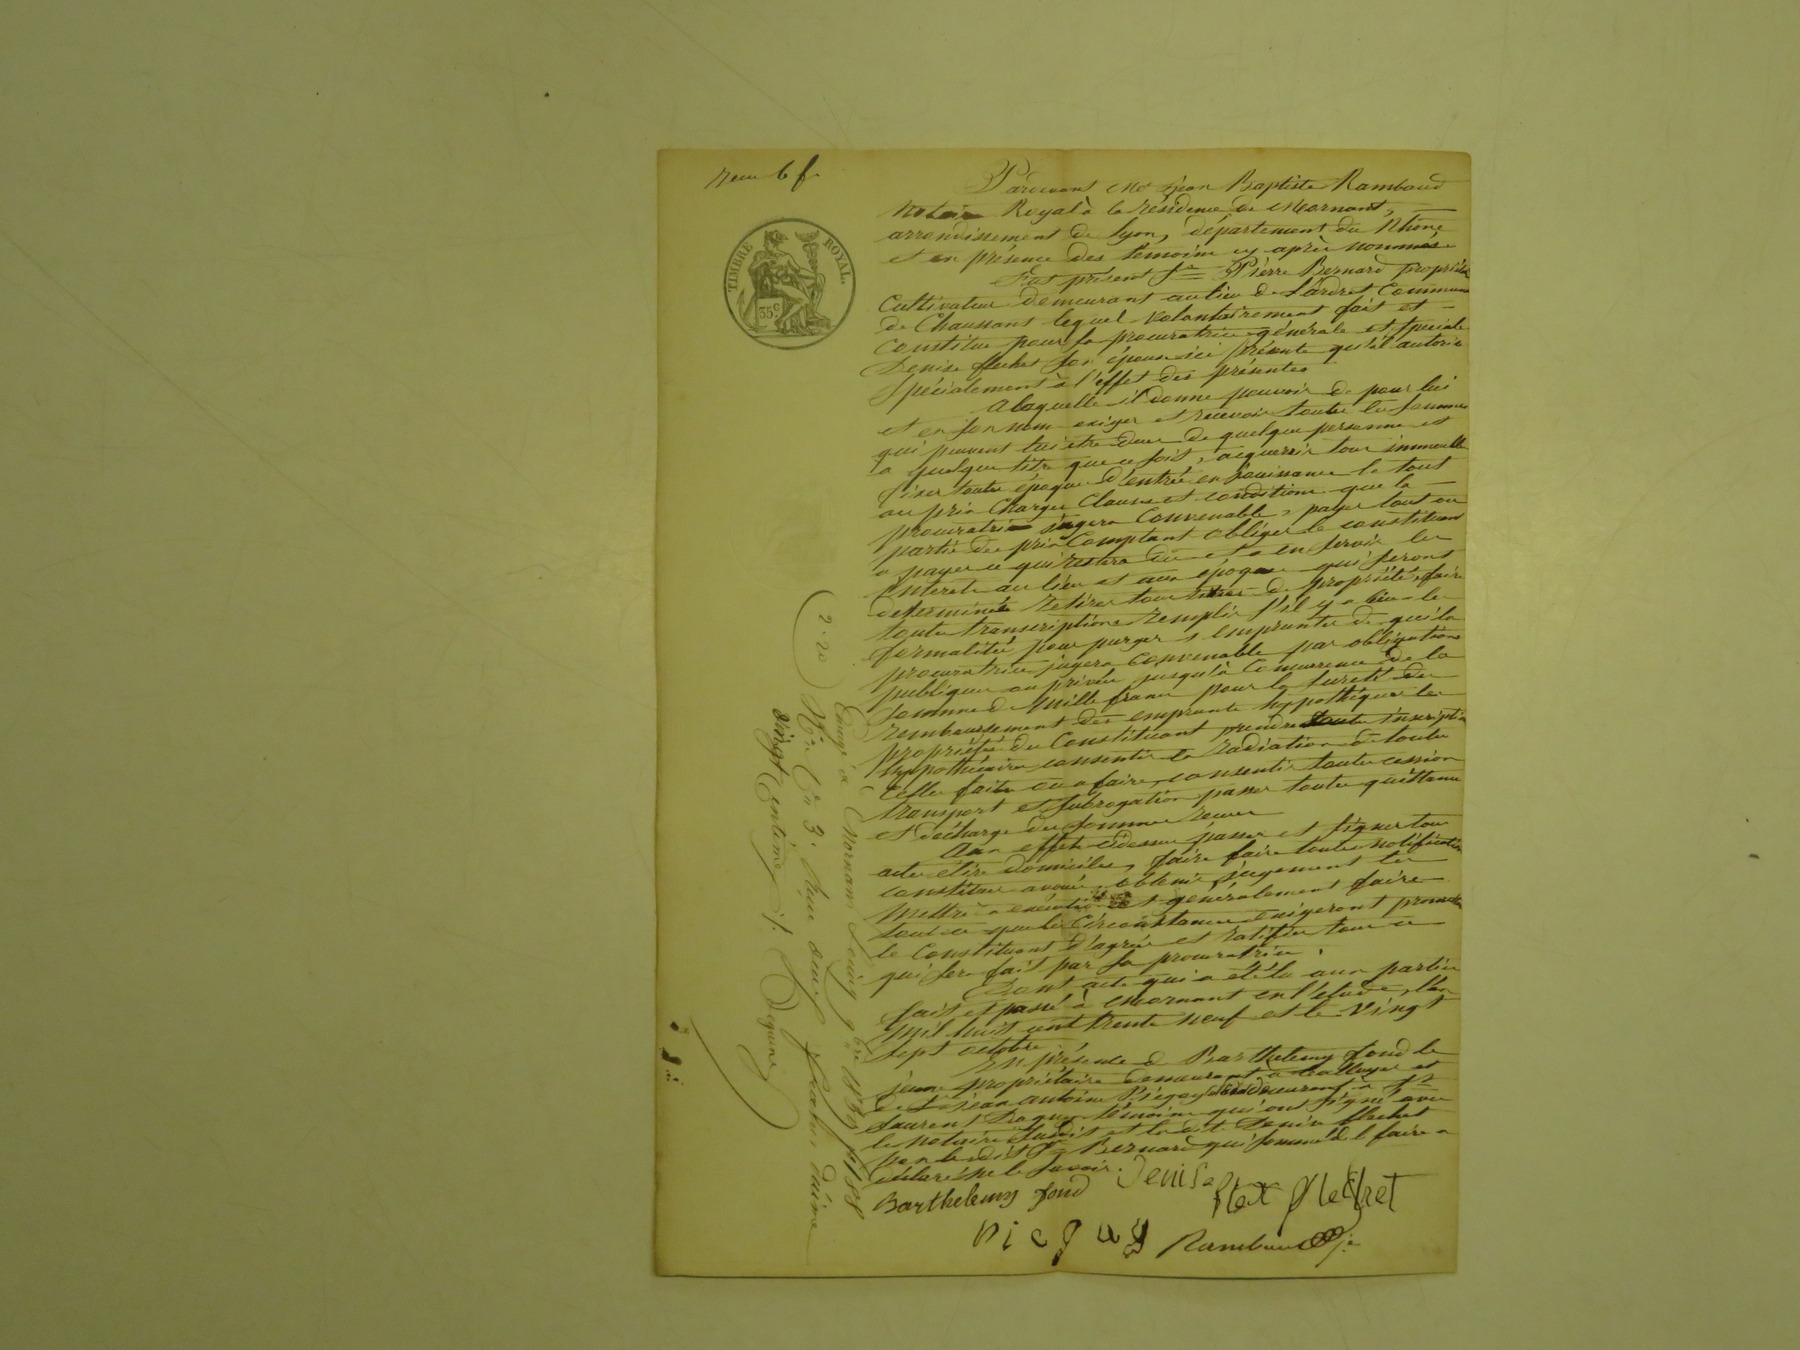 reçu 6 f.
TIMBRE ROYAL
35 c
Pardevant Me Jean Baptiste Rambaud
Notaire Royal à la résidence de Mornant,
arrondissement de Lyon, département du Rhône
et en présence des temoins cy après nommés
Est présent Sr Pierre Bernard propriétaire
Cultivateur demeurant au lieu de Lardret Commune
de Chaussans lequel volontairement fait et
Constitue pour sa procuratrice générale et speciale
Denise flechet son épouse ici présente qu'il autorise
Spécialement à l'effet des présentes
A laquelle il donne pouvoir de pour lui
et en son nom exiger et recevoir toutes les sommes
qui peuvent lui être dues de quelques personnes et
à quelque titre que ce soit, acquerir tous immeubles
fixer toutes époques d'entrée en jouissance le tout
aux prix Charges Clauses et conditions que la
procuratrice jugera Convenable, payer tout ou
partie des prix Comptant obliger le constituant
a payer ce qui restera du et a en servir les
interets aux lieu et aux époques qui seront
determinés retirer tous titres de propriété, faire
toutes transcriptions remplir s'il y a lieu les
formalités pour purger, emprunter de qui la
procuratrice jugera convenable par obligations
publiques ou privées jusqu'à Concurrence de la
Somme de Mille francs pour la sureté du
remboursement des emprunts hyppothéquer les
propriétés du Constituant prendre toutes inscriptions
hyppothécaires consentir la radiation de toutes
celles faites ou a faire, consentir toutes cession
transport et subrogation passer toutes quittances
et décharges des sommes reçues
Aux effets cidessus passer et signer tous
actes élire domiciles, faire faire toutes notifications
constituer avoués, obtenir jugement les
Mettre a execution et généralement faire
tout ce que les circonstances exigeront promettant
le Constituant d'agréer et ratifier tout ce
qui sera fait par sa procuratrice
Dont acte qui a été lu aux parties
fait et passé à Mornant en l'étude, l'an
mil huit cent trente neuf et le vingt
sept octobre
En présence de Barthelemy fond le
jeune propriétaire demeurant à
de Sr Jean antoine Piegay demeurant à St
Laurent Dagny témoins qui ont signé avec
le notaire susdit et la dite Denise flechet
non ledit Sr Bernard qui sommé de le faire a
déclaré ne le savoir.
Barthelemy fond Denise flechet
Piegay Rambaud
2. 20
Enregé à Mornant Le cinq 9bre 1839 fo 188
Ro Cn 3. Reçu deux francs dixme
vingt Centimes